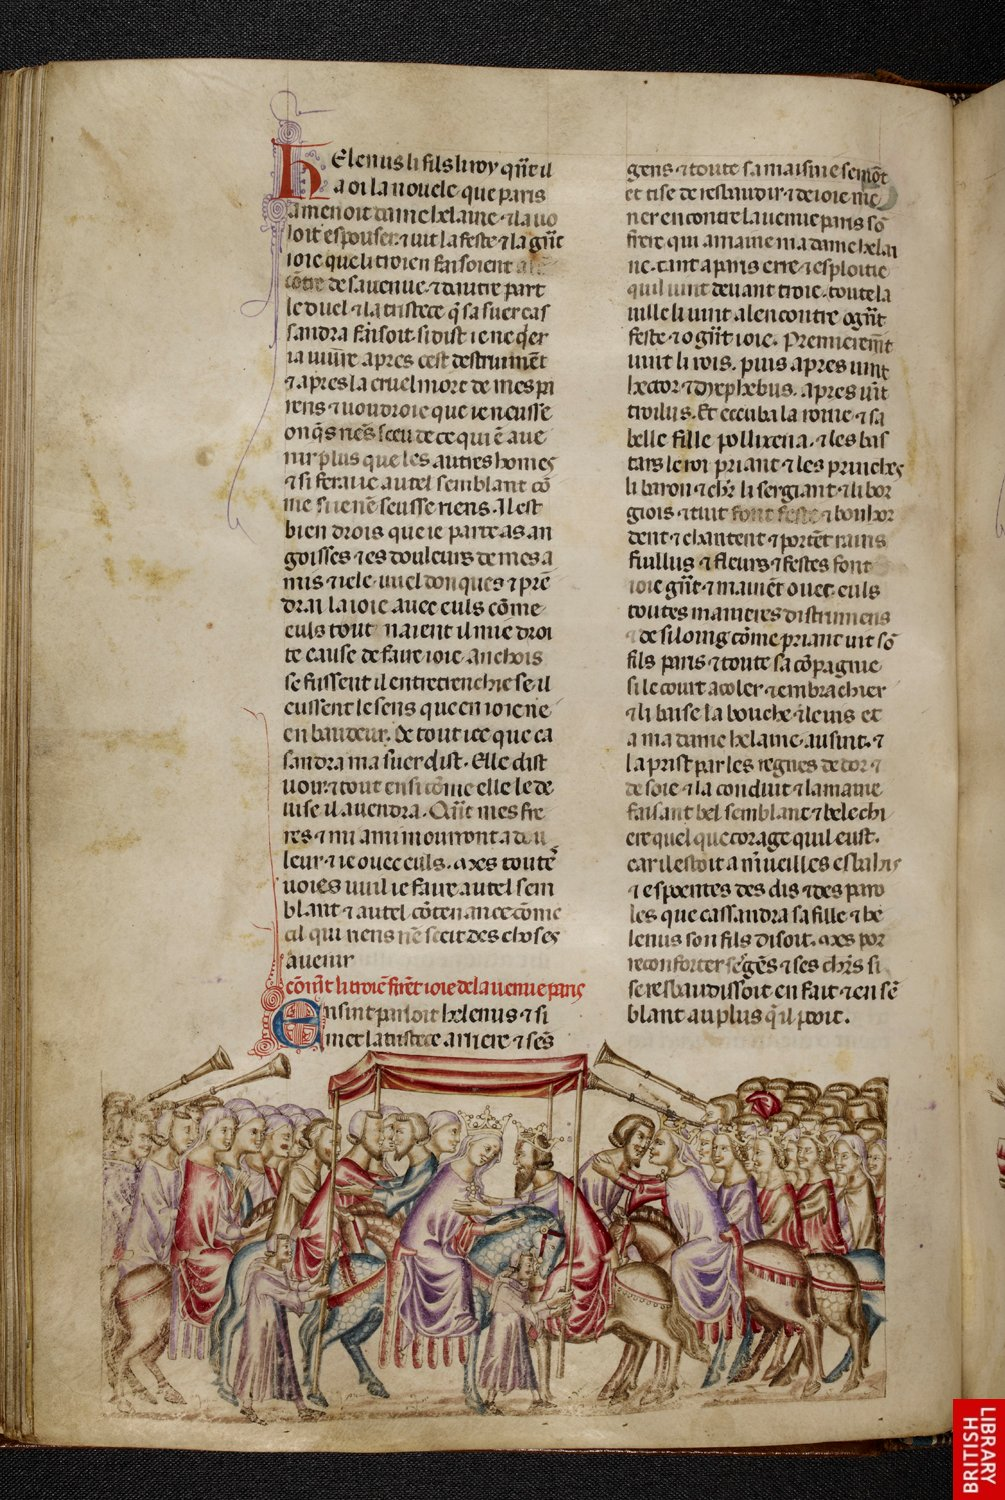 HElenus li fils li roy qñt il
a oi la nouele que paris
amenoit dame helaine ⁊ la uo
loit espouser ⁊ uit la feste ⁊ la gñt
ioie que li troien faisoient
cõtre de sa uenue ⁊ dautre part
le duel ⁊ la tristece q̃ sa suer cas
sandra faisoit si dist ie ne q̃er
ia uiure apres cest destruimẽt
⁊ apres la cruel mort de mes pa
rens ⁊ uoudroie que ie neusse
onq̃s nẽs sceu de ce qui ẽ aue
nir plus que les autres homes
⁊ si feraie autel semblant cõ
me se ie nẽ seusse riens. Il est
bien drois que ie parte as an
goisses ⁊ es douleurs de mes a
mis ⁊ ie le uuel donques ⁊ prẽ
drai la ioie auec euls cõme
euls tout naient il mie droi
te cause de faire ioie anchois
se fussent il entretrenchie se il
eussent le sens que en ioie ne
en baudeur. De tout ice que ca
sandra ma suer dist. Elle dist
uoir ⁊ tout ensi cõme elle le de
uise il auendra. Qñt mes fre
res ⁊ mi ami mourront a dou
leur ⁊ ie ouec euls. Mes toute
uoies uuil ie faire autel sem
blant ⁊ autel cõtenance cõme
cil qui riens nẽ seeit des choses
auenir
cõmẽt li troiẽ firẽt ioie de la uenue paris
Ensint parloit helenus ⁊ si
met la tristece arriere ⁊ ses
gens ⁊ toute sa maisnie semõt
et tise de resbaudir ⁊ de ioie me
ner encontre la uenue paris sõ
frere qui amaine ma dame helai
ne. tant a paris erre ⁊ esploitie
quil uint deuant troie. toute la
uille li uint alencontre o gñt
feste ⁊ o gñt ioie. Premieremẽt
uint li rois. puis apres uint
hector ⁊ dyephebus. apres uĩt
troilus. Et eccuba la roine ⁊ sa
belle fille pollixena. ⁊ les bas
tars le roi priant ⁊ les princhez
li baron ⁊ chr̃ li sergiant ⁊ li bor
giois ⁊ tuit font feste ⁊ bouhor
dent ⁊ chantent ⁊ portẽt rains
fiullus ⁊ fleurs ⁊ festes font
ioie gñt ⁊ mainẽt ouec euls
toutes manieres distrumens
⁊ de si loing cõme priant uit sõ
fils paris ⁊ toute sa cõpagnie
si le court acoler ⁊ embrachier
⁊ li baise la bouche ⁊ le uis et
a ma dame helaine ausint. ⁊
la prist par les regnes de dor ⁊
de soie ⁊ la conduit ⁊ lamaine
faisant bel semblant ⁊ bele chi
ere quel que corage quil eust.
car il estoit a m̃ueilles esbahis
⁊ espoentes des dis ⁊ des paro
les que cassandra sa fille ⁊ he
lenus son fils disoit. Mes por
reconforter se gẽs ⁊ ses chr̃s si
se resbaudissoit en fait ⁊ en sẽ
blant au plus q̃ il pooit.
BRITISH
LIBRARY